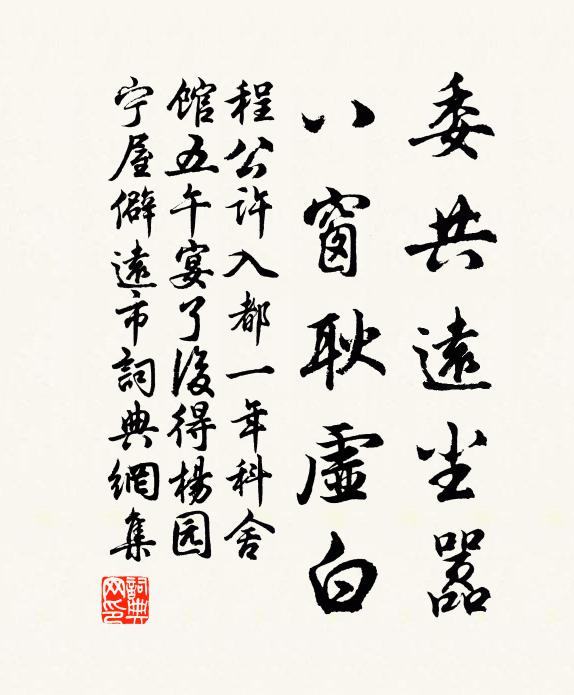 委共遠尘嚣
八窗耿虛白
程公许入都一年科舍
馆五午宴了後得楊园
宁屋僻遠市詞典網集
詞典网印